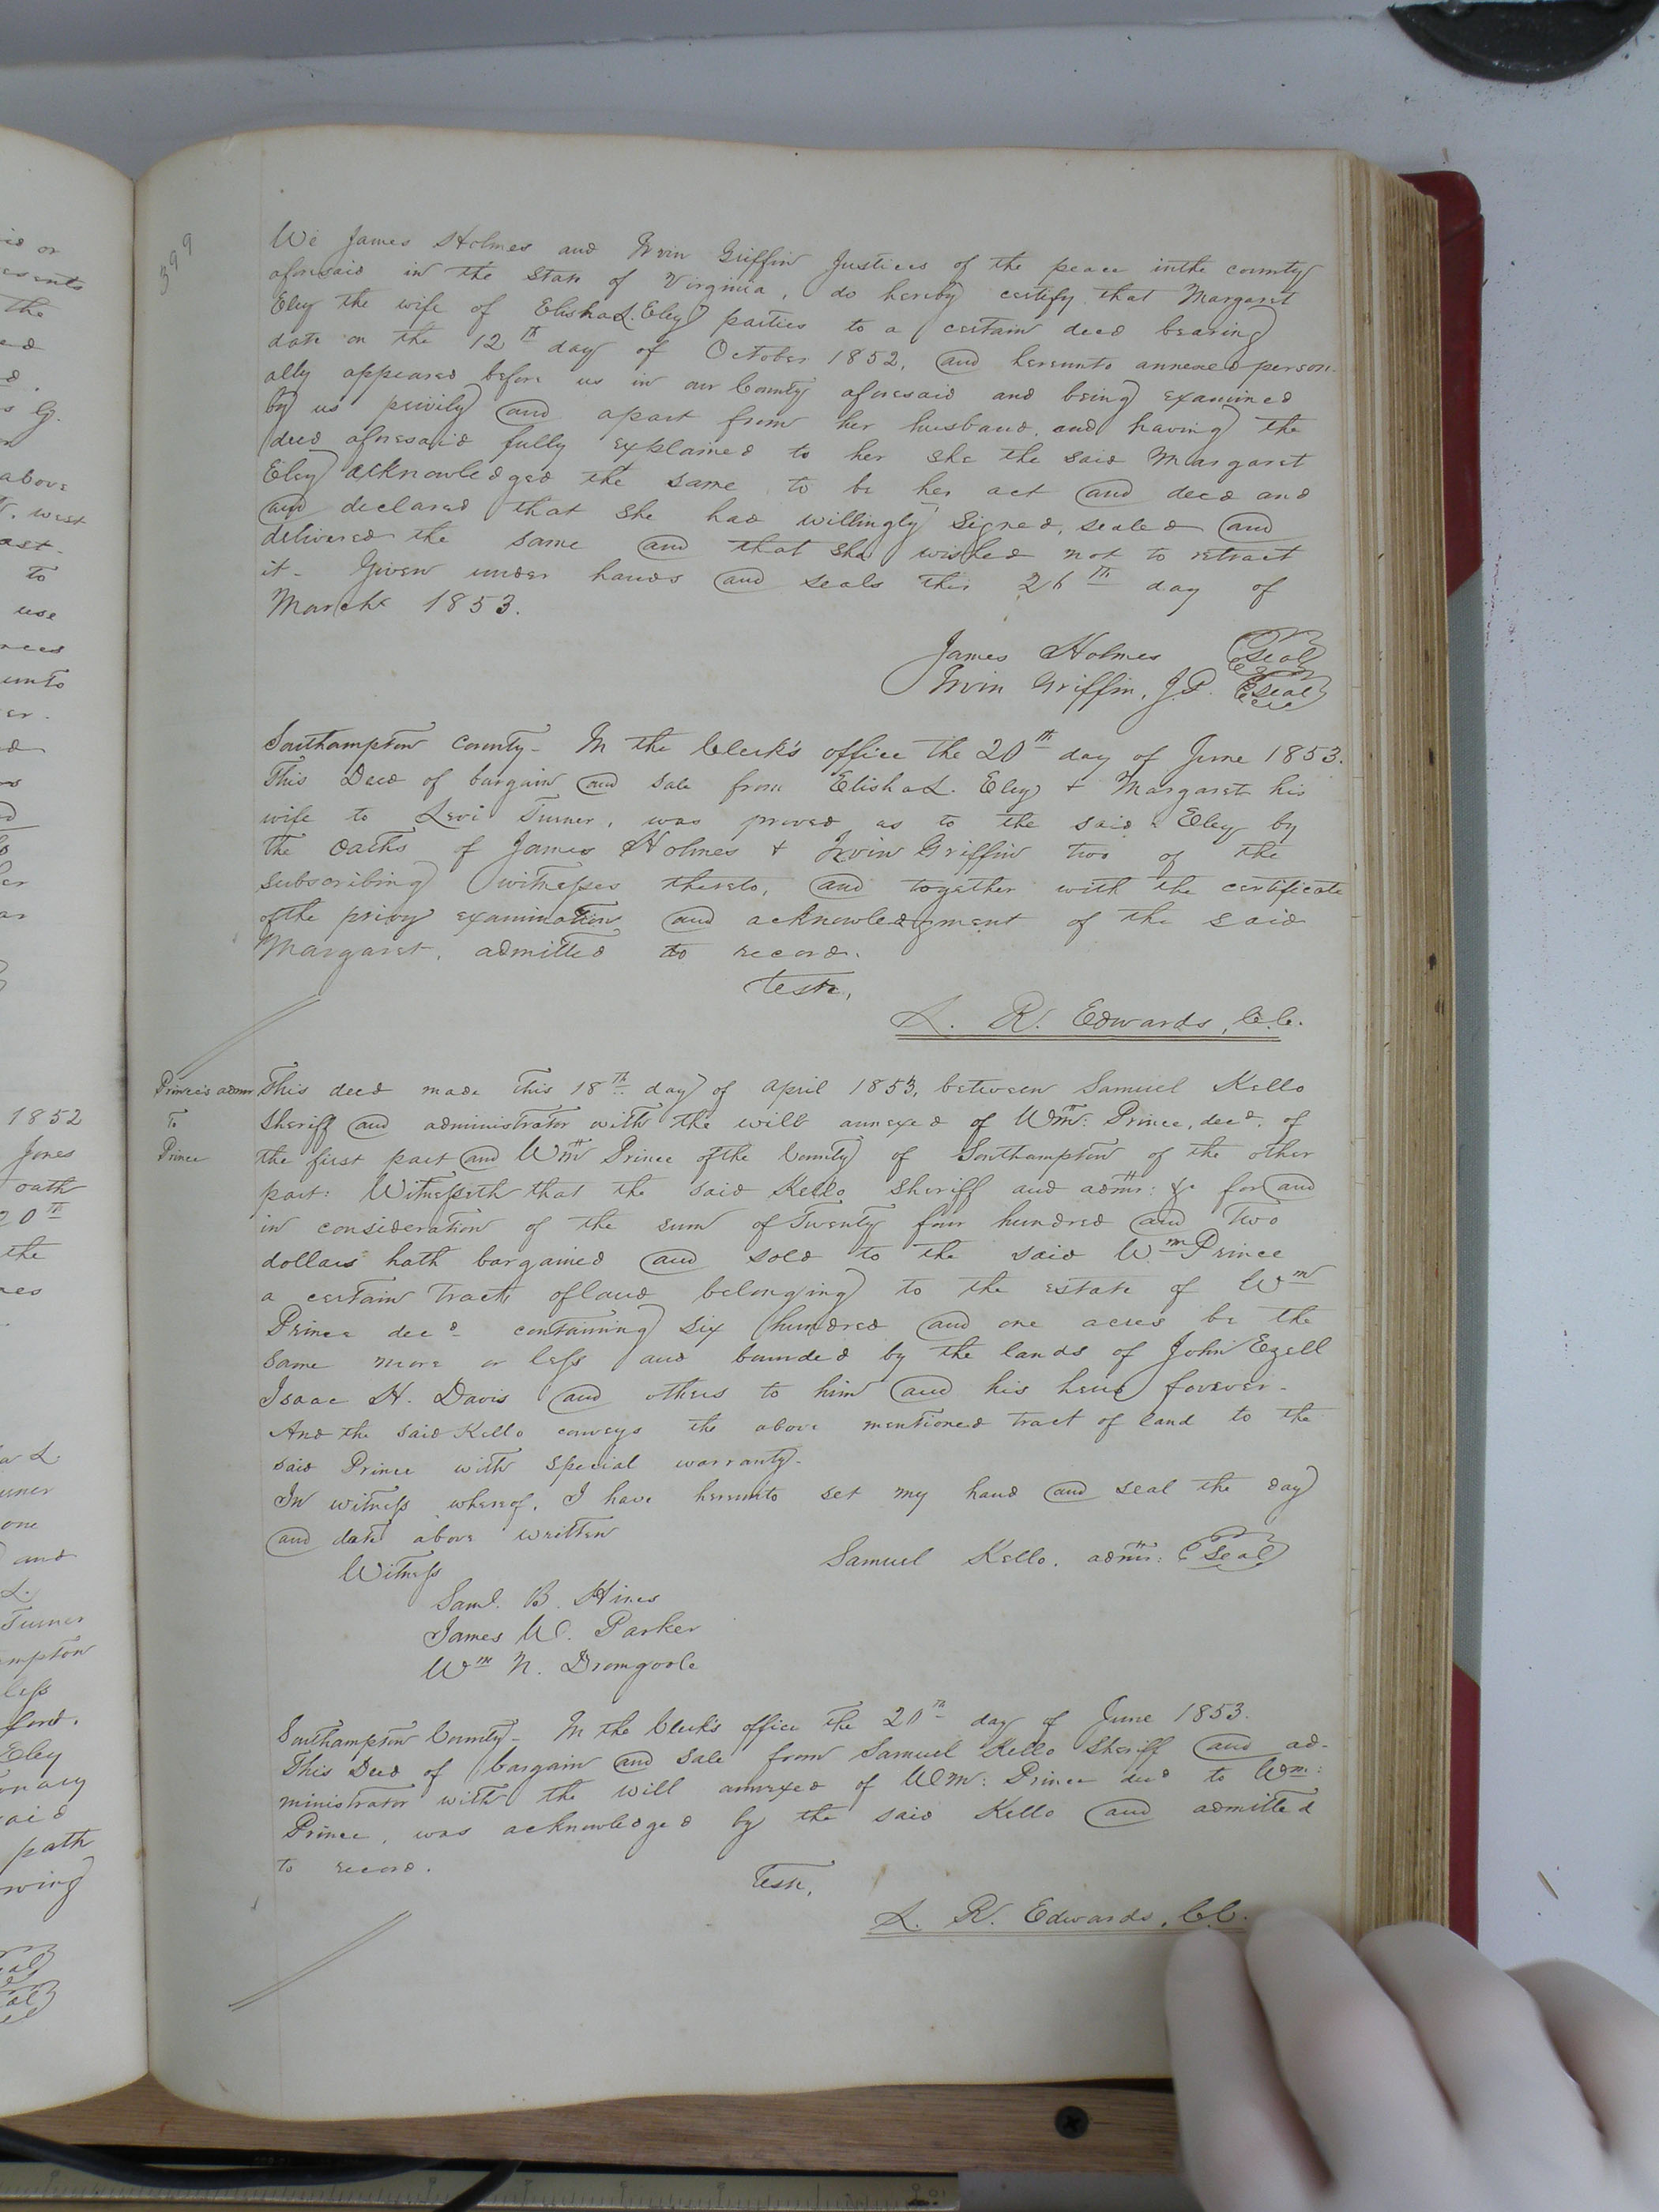 399
We James Holmes and Irvin Griffin Justices of the peace in the county
aforesaid in the State of Virginia, do hereby certify that Margaret
Eley the wife of Elisha L. Eley parties to a certain deed bearing
date on the 12th day of October 1852, and hereunto annexed person-
ally appeared before us in our County aforesaid and being examined
by us privily and apart from her husband, and having the
deed aforesaid fully explained to her she the said Margaret
Eley acknowledged the same to be her act and deed and
and declared that she had willingly signed, sealed and
delivered the same and that she wished not to retract
it - Given under hands and seals this 26th day of
March 1853.
James Holmes Seal
Irvin Griffin, J.P. Seal
Southampton County - In the Clerk's office the 20th day of June 1853.
This Deed of bargain and sale from Elisha L. Eley + Margaret his
wife to Levi Turner, was proved as to the said Eley by
the oaths of James Holmes + Irvin Griffin two of the
subscribing witnesses thereto, and together with the certificate
of the privy examination and acknowledgment of the said
Margaret, admitted to record.
Teste,
L. R. Edwards, C.C.
Prince's admr
To
Prince
This deed made this 18th day of April 1853, between Samuel Kello
Sheriff and administrator with the will annexed of Wm: Prince, decd. of
the first part and Wm Prince of the County of Southampton of the other
part: Witnesseth that the said Kello Sheriff and admr: &c for and
in consideration of the sum of Twenty four hundred and Two
dollars hath bargained and sold to the said Wm Prince
a certain tract of land belonging to the estate of Wm
Prince decd containing six hundred and one acres be the
same more or less and bounded by the lands of John Ezell
Isaac H. Davis and others to him and his heirs forever -
And the said Kello conveys the above mentioned tract of land to the
said Prince with special warranty -
In witness whereof, I have hereunto set my hand and seal the day
and date above written
Samuel Kello. admr: Seal
Witness
Saml. B. Hines
James W. Parker
Wm N. Dromgoole
Southampton County - In the Clerk's office the 20th day of June 1853.
This Deed of bargain and sale from Samuel Kello Sheriff and ad-
ministrator with the will annexed of Wm: Prince decd to Wm:
Prince, was acknowledged by the said Kello and admitted
to record.
Teste,
L. R. Edwards, C.C.